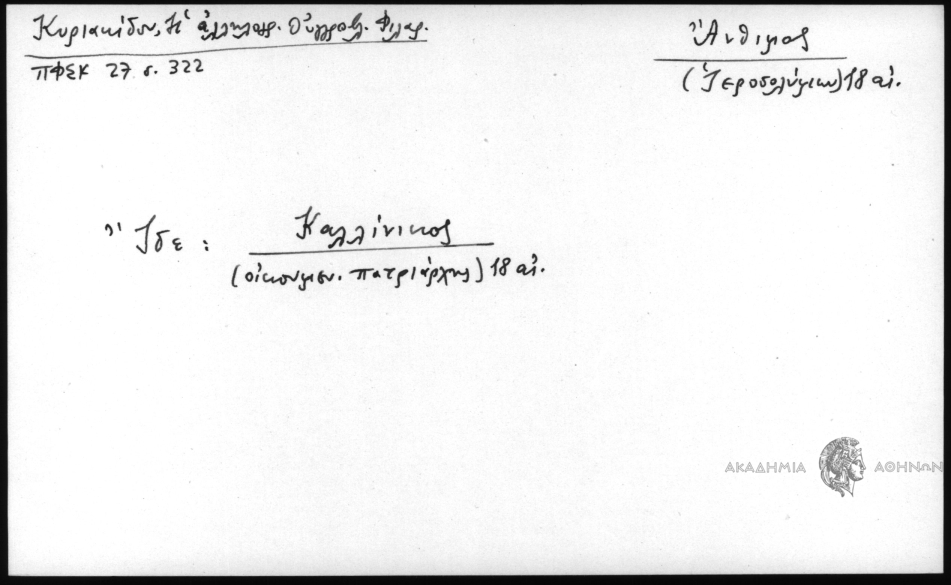 Κυριακίδου, Ἡ ἀλληλογρ. Οὐγγροβλ. Φιλαρ.
ΠΦΣΚ 27 σ. 322
Ἄνθιμος
(Ἱεροσολύμων) 18 αἰ.
Ἴδε : Καλλίνικος
(οἰκουμεν. πατριάρχης) 18 αἰ.
ΑΚΑΔΗΜΙΑ ΑΘΗΝΩΝ